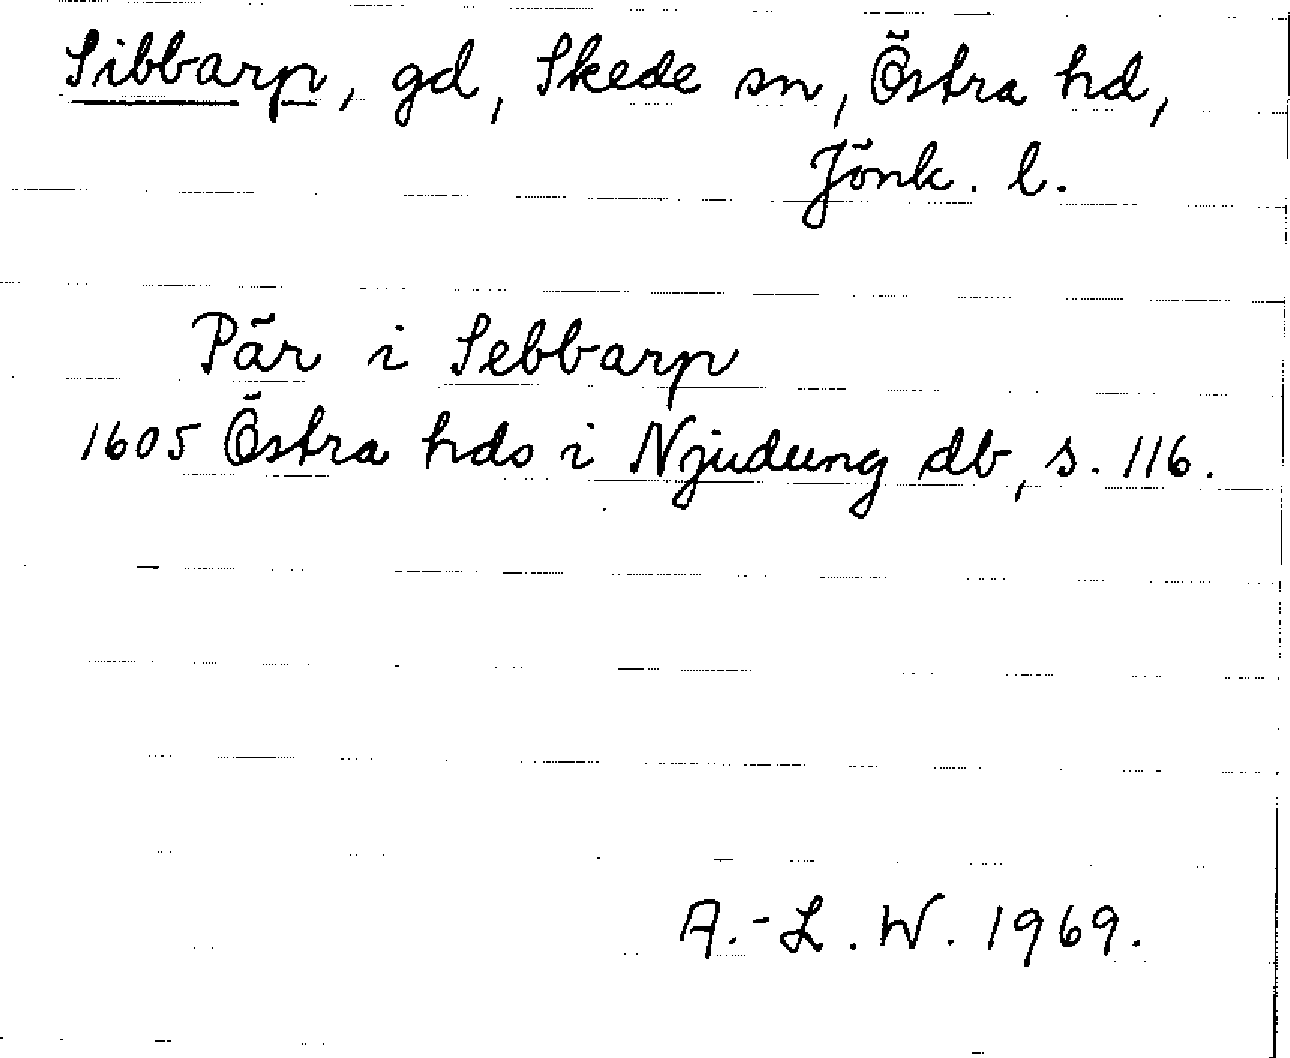 Sibbarp, gd, Skede sn, Östra hd,
Jönk. l.
Pär i Sebbarp
1605 Östra hds i Njudung db, s. 116.
A.-L. W. 1969.